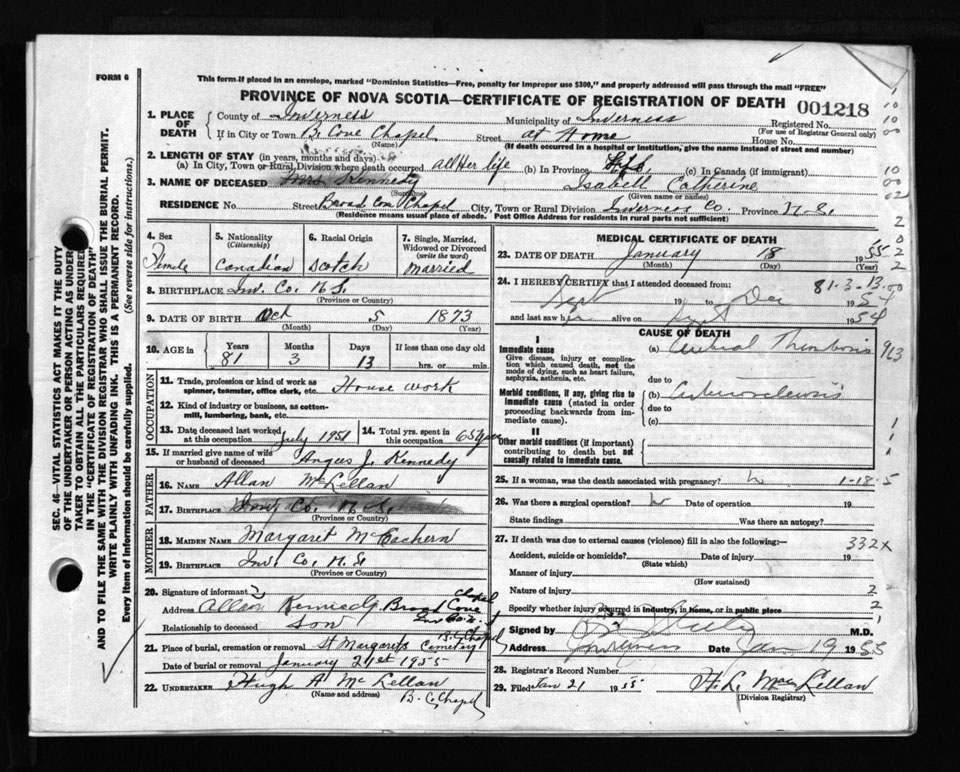 FORM 6
This form if placed in an envelope, marked "Dominion Statistics—Free, penalty for improper use $300," and properly addressed will pass through the mail "FREE"
PROVINCE OF NOVA SCOTIA—CERTIFICATE OF REGISTRATION OF DEATH 001218
1. PLACE OF DEATH County of Inverness Municipality of Inverness Registered No.
(For use of Registrar General only)
If in City or Town B. Cove Chapel Street at Home House No.
(Name) (If death occurred in a hospital or institution, give the name instead of street and number)
2. LENGTH OF STAY (in years, months and days)
(a) In City, Town or Rural Division where death occurred all Her life (b) In Province (c) In Canada (if immigrant)
3. NAME OF DECEASED Mrs Kennedy Isabell Catherine
(Given name or names)
RESIDENCE No. Street Broad Cove Chapel City, Town or Rural Division Inverness Co. Province N.S.
(Residence means usual place of abode. Post Office Address for residents in rural parts not sufficient)
4. Sex Female
5. Nationality (Citizenship) Canadian
6. Racial Origin Scotch
7. Single, Married, Widowed or Divorced (write the word) married
8. BIRTHPLACE Inv. Co. N.S.
(Province or Country)
9. DATE OF BIRTH Oct 5 1873
(Month) (Day) (Year)
10. AGE in Years Months Days If less than one day old
81 3 13 hrs. or min.
OCCUPATION
11. Trade, profession or kind of work as spinner, teamster, office clerk, etc. House work
12. Kind of industry or business, as cotton-mill, lumbering, bank, etc.
13. Date deceased last worked at this occupation July 1951 14. Total yrs. spent in this occupation 65 years
15. If married give name of wife or husband of deceased Angus J. Kennedy
FATHER
16. Name Allan McLellan
17. Birthplace Inv. Co. N.S.
(Province or Country)
MOTHER
18. MAIDEN NAME Margaret McEachern
19. BIRTHPLACE Inv. Co. N.S
(Province or Country)
20. Signature of informant
Address Allan Kennedy Broad Cove Chapel
Relationship to deceased Son
21. Place of burial, cremation or removal St Margarets Cemetery B.C. Chapel
Date of burial or removal January 21st 1955
22. UNDERTAKER Hugh A McLellan
(Name and address) B. C. Chapel
MEDICAL CERTIFICATE OF DEATH
23. DATE OF DEATH January 18 1955
(Month) (Day) (Year)
81-3-13.00
24. I HEREBY CERTIFY that I attended deceased from:
Sept 19 to Dec 1954
and last saw h alive on Sept 1954
CAUSE OF DEATH
I
Immediate cause (a) Cerebral Thrombosis
Give disease, injury or complication which caused death, not the mode of dying, such as heart failure, asphyxia, asthenia, etc.
due to
Morbid conditions, if any, giving rise to immediate cause (stated in order proceeding backwards from immediate cause). (b)
due to
(c)
II
Other morbid conditions (if important) contributing to death but not causally related to immediate cause.
25. If a woman, was the death associated with pregnancy? 1-18-5
26. Was there a surgical operation? Date of operation 19
State findings Was there an autopsy?
27. If death was due to external causes (violence) fill in also the following:—
332x
Accident, suicide or homicide? Date of injury 19
(State which)
Manner of injury
(How sustained)
Nature of injury 2
Specify whether injury occurred in industry, in home, or in public place 2
Signed by M.D.
Address Inverness Date Jan 19 1955
28. Registrar's Record Number
29. Filed Jan 21 1955 H. L. MacLellan
(Division Registrar)
SEC. 46—VITAL STATISTICS ACT MAKES IT THE DUTY
OF THE UNDERTAKER OR PERSON ACTING AS UNDER
TAKER TO OBTAIN ALL THE PARTICULARS REQUIRED
IN THE "CERTIFICATE OF REGISTRATION OF DEATH"
AND TO FILE THE SAME WITH THE DIVISION REGISTRAR WHO SHALL ISSUE THE BURIAL PERMIT.
WRITE PLAINLY WITH UNFADING INK. THIS IS A PERMANENT RECORD.
Every item of information should be carefully supplied. (See reverse side for instructions.)